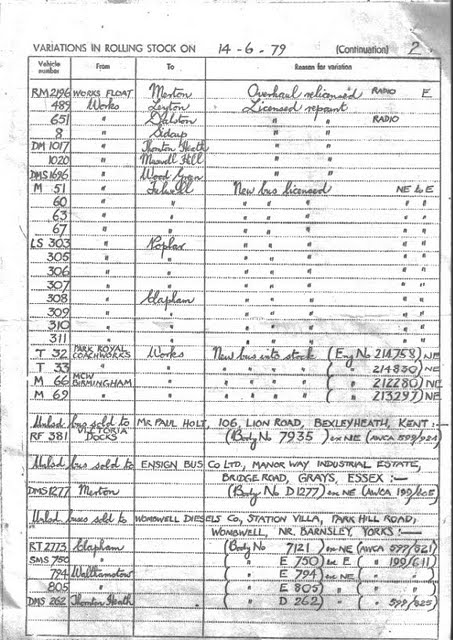 VARIATIONS IN ROLLING STOCK ON 14-6-79 (Continuation) 2
Vehicle number From To Reason for variation
RM2196 WORKS FLOAT Merton Overhaul relicensed RADIO E
489 Works Leyton Licensed repaint
651 " Dalston " " RADIO
8 " Sidcup " "
DM 1017 " Thornton Heath " "
1020 " Muswell Hill " "
DMS1696 " Wood Green " "
M 51 " Fulwell New bus licensed NE to E
60 " " " " " " "
63 " " " " " " "
67 " " " " " " "
LS 303 " Poplar " " " " "
305 " " " " " " "
306 " " " " " " "
307 " " " " " " "
308 " Clapham " " " " "
309 " " " " " " "
310 " " " " " " "
311 " " " " " " "
T 32 PARK ROYAL COACHWORKS Works New bus into stock (Eng No 214758) NE
T 33 " " " " " " ( " 214830) NE
M 66 MCW BIRMINGHAM " " " " " ( " 212280) NE
M 69 " " " " " " ( " 213297) NE
Unlsd bus sold to MR PAUL HOLT, 106, LION ROAD, BEXLEYHEATH, KENT :—
RF 381 VICTORIA DOCKS (Body No 7935) ex NE (AWCA 599/924)
Unlsd bus sold to ENSIGN BUS CO LTD., MANOR WAY INDUSTRIAL ESTATE,
BRIDGE ROAD, GRAYS, ESSEX :—
DMS1277 Merton (Body No D1277) ex NE (AWCA 199/605)
Unlsd buses sold to WOMBWELL DIESELS Co, STATION VILLA, PARK HILL ROAD,
WOMBWELL, NR. BARNSLEY, YORKS :—
RT 2773 Clapham (Body No 7121) ex NE (AWCA 599/821)
SMS 750 " ( " E 750) ex E ( " 199/611)
794 Walthamstow ( " E 794) ex NE ( " " )
805 " ( " E 805) " ( " " )
DMS 262 Thornton Heath ( " D 262) " ( " 599/825)